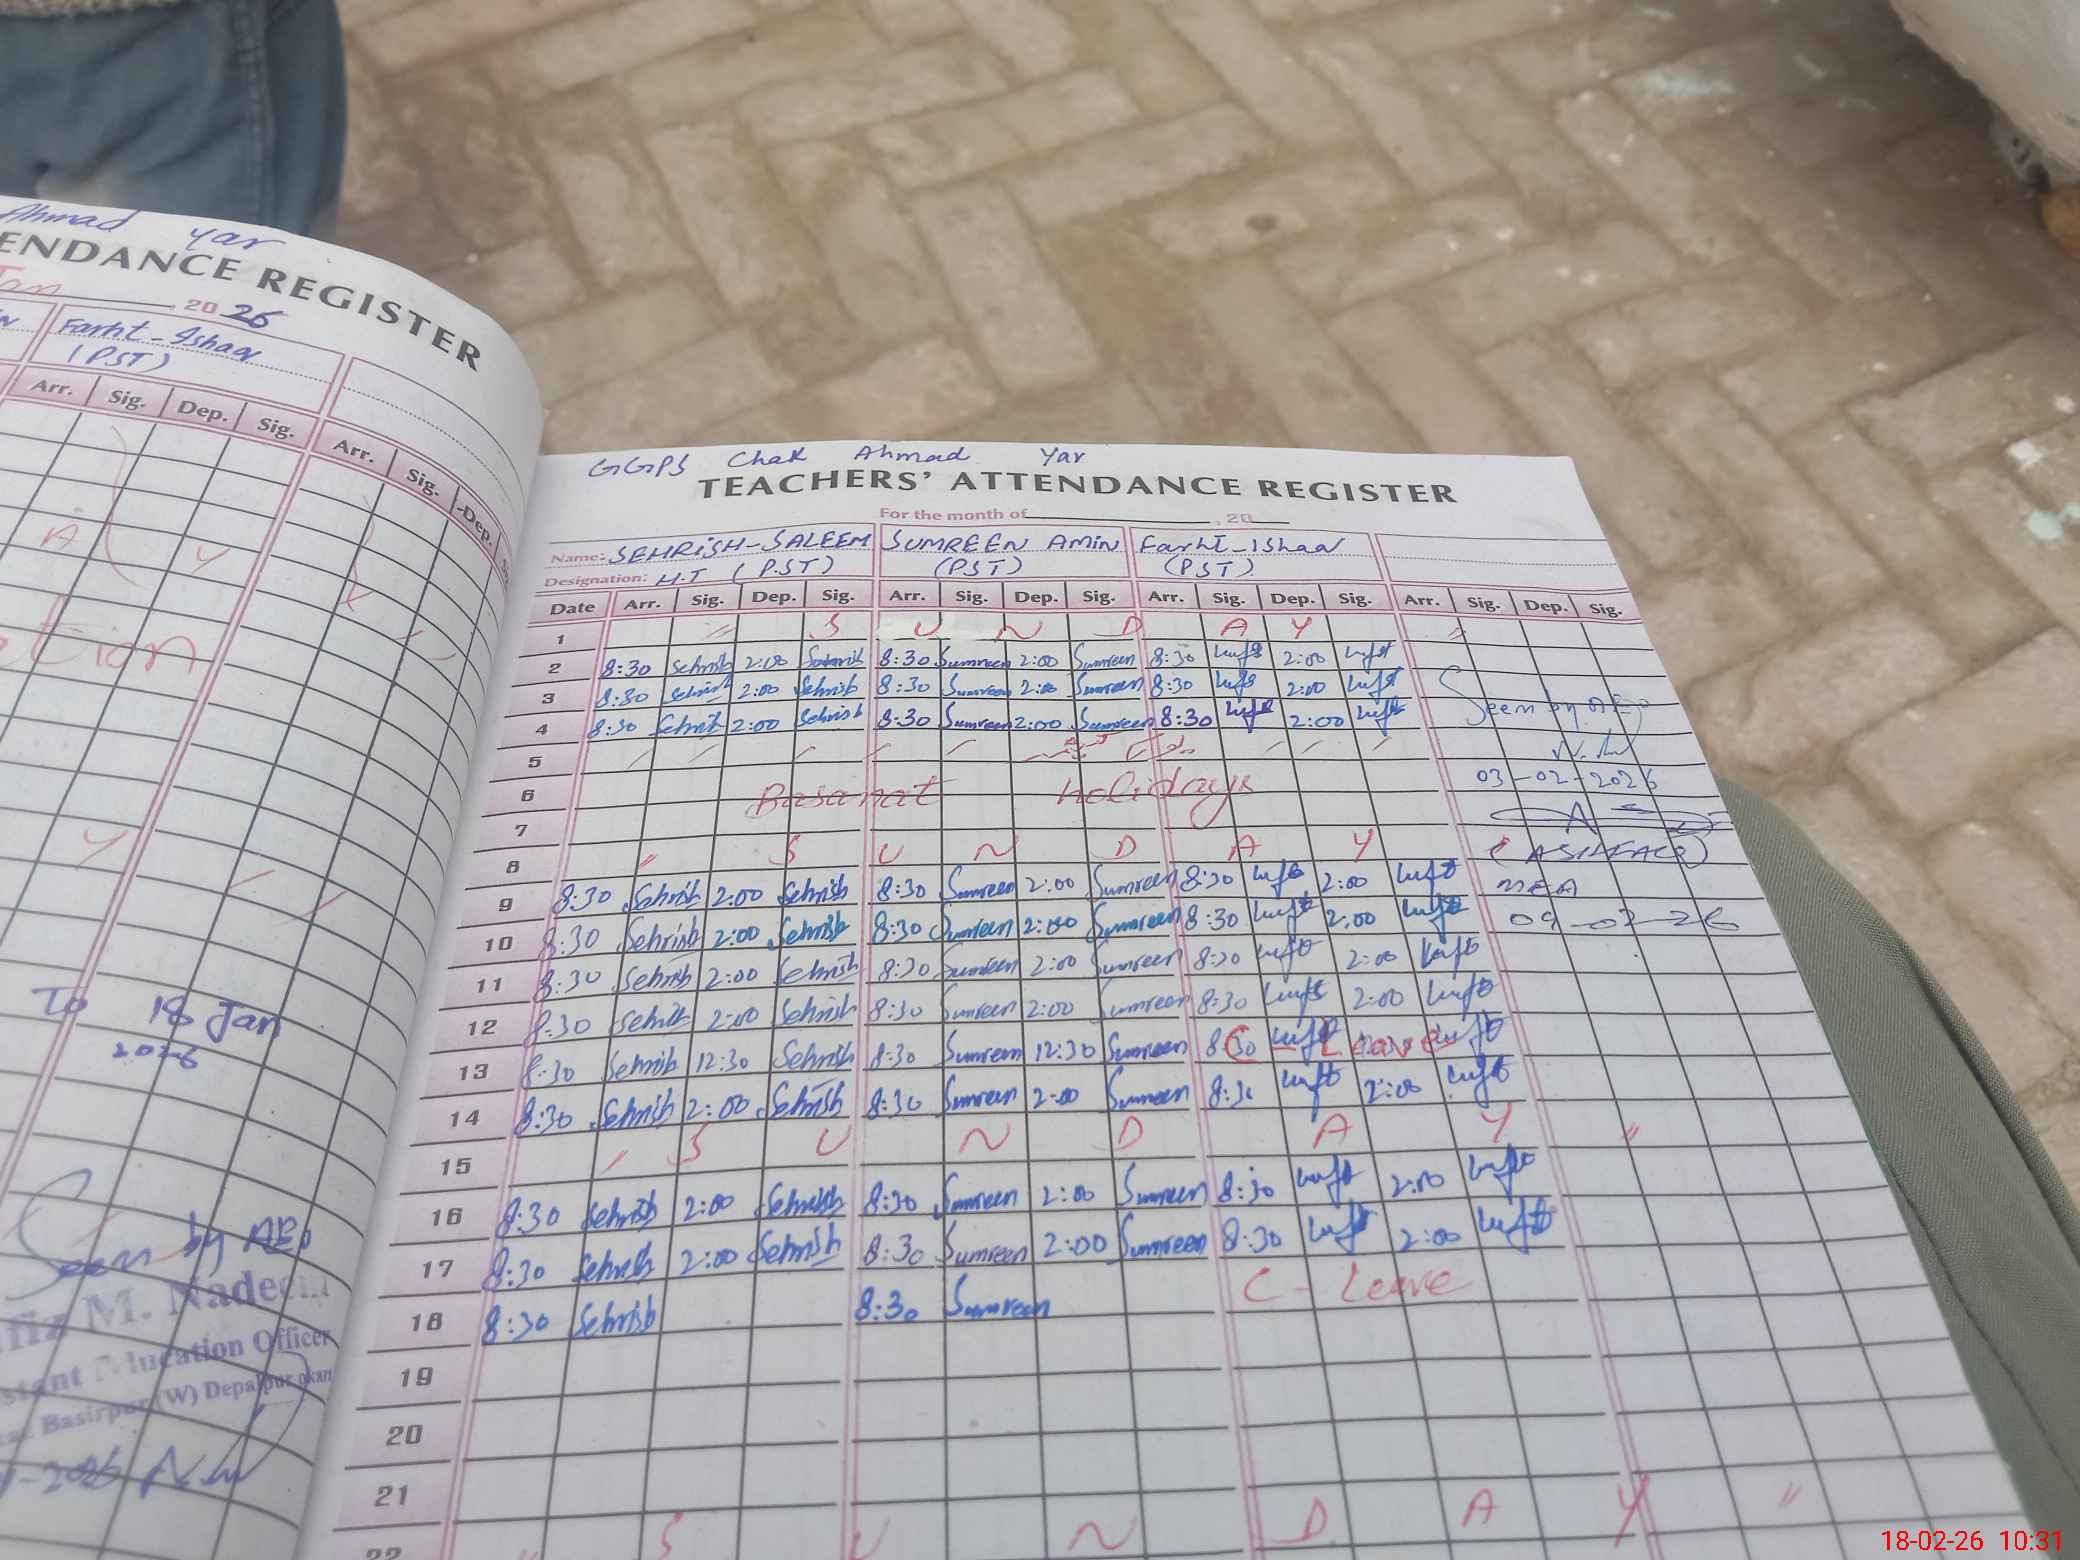 Ahmad Yar
ENDANCE REGISTER
Jan , 20 26
Farht-Ishaq
(PST)
Arr. Sig. Dep. Sig. Arr. Sig. Dep.
A Y
Y
To 18 Jan
2026
Seen by AEO
M. Nadeem
Education Officer
Basirpur (W) Depalpur
GGPS Chak Ahmad Yar
TEACHERS' ATTENDANCE REGISTER
For the month of , 20
Name: SEHRISH-SALEEM SUMREEN AMIN Farht-Ishaq
Designation: H.T (PST) (PST) (PST)
Date Arr. Sig. Dep. Sig. Arr. Sig. Dep. Sig. Arr. Sig. Dep. Sig. Arr. Sig. Dep. Sig.
1 S U N D A Y
2 8:30 Sehrish 2:00 Sehrish 8:30 Sumreen 2:00 Sumreen 8:30 2:00
3 8:30 Sehrish 2:00 Sehrish 8:30 Sumreen 2:00 Sumreen 8:30 2:00
4 8:30 Sehrish 2:00 Sehrish 8:30 Sumreen 2:00 Sumreen 8:30 2:00
5
6 Basanat Holidays
7
8 S U N D A Y
9 8:30 Sehrish 2:00 Sehrish 8:30 Sumreen 2:00 Sumreen 8:30 2:00
10 8:30 Sehrish 2:00 Sehrish 8:30 Sumreen 2:00 Sumreen 8:30 2:00
11 8:30 Sehrish 2:00 Sehrish 8:30 Sumreen 2:00 Sumreen 8:30 2:00
12 8:30 Sehrish 2:00 Sehrish 8:30 Sumreen 2:00 Sumreen 8:30 2:00
13 8:30 Sehrish 12:30 Sehrish 8:30 Sumreen 12:30 Sumreen 8:30 C - Leave
14 8:30 Sehrish 2:00 Sehrish 8:30 Sumreen 2:00 Sumreen 8:30 2:00
15 S U N D A Y
16 8:30 Sehrish 2:00 Sehrish 8:30 Sumreen 2:00 Sumreen 8:30 2:00
17 8:30 Sehrish 2:00 Sehrish 8:30 Sumreen 2:00 Sumreen 8:30 2:00
18 8:30 Sehrish 8:30 Sumreen C - Leave
19
20
21
22 S U N D A Y
Seen by AEO
03-02-2026
MEA
09-02-26
18-02-26 10:31